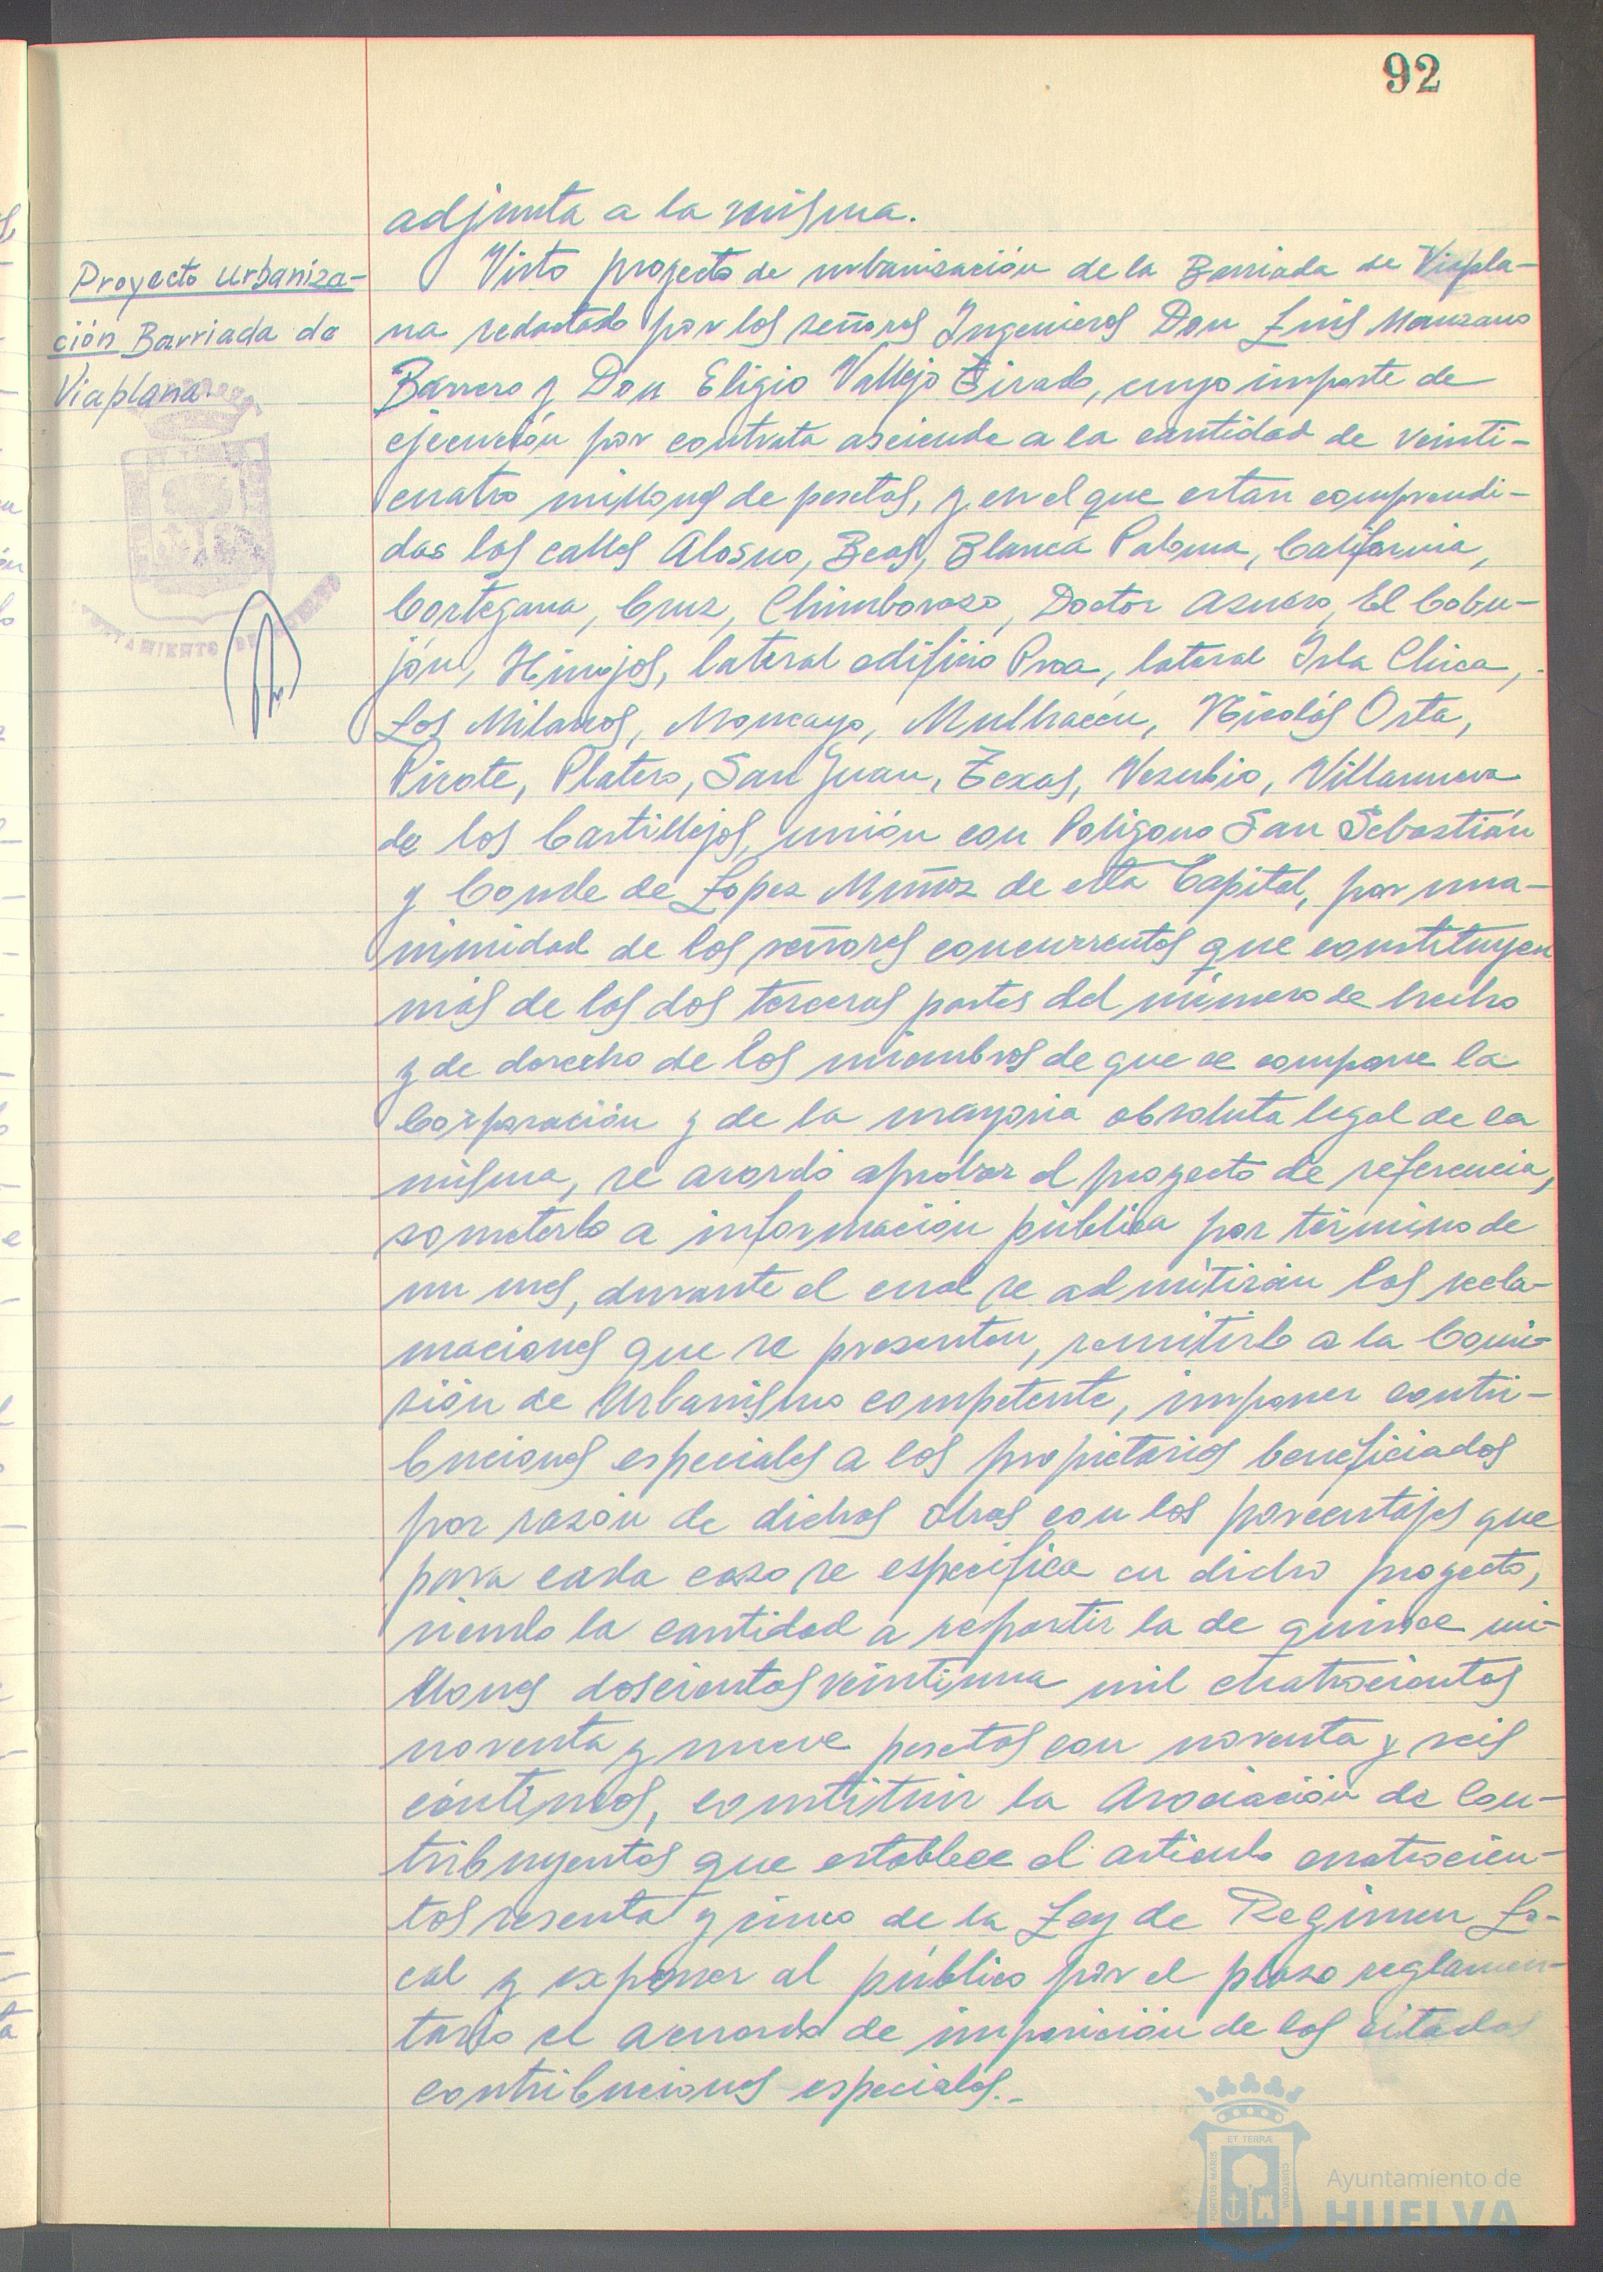 92
adjunta a la misma.
Proyecto Urbaniza-
ción Barriada de
Viaplana
Visto proyecto de urbanización de la Barriada de Viapla-
na redactado por los señores Ingenieros Don Luis Manzano
Barrero y Don Eligio Vallejo Tirado, cuyo importe de
ejecución por contrata asciende a la cantidad de veinti-
cuatro millones de pesetas, y en el que estan comprendi-
das las calles Alosno, Beas, Blanca Paloma, California,
Cortegana, Cruz, Chimborazo, Doctor Azuero, El Cobu-
jón, Hinojos, lateral edificio Proa, lateral Isla Chica,
Los Milanos, Moncayo, Mulhacén, Nicolás Orta,
Pirote, Platero, San Juan, Texas, Vesubio, Villanueva
de los Castillejos, unión con Poligono San Sebastián
y Conde de Lopez Muñoz de esta Capital, por una-
nimidad de los señores concurrentes que constituyen
más de las dos terceras partes del número de hecho
y de derecho de los miembros de que se compone la
Corporación y de la mayoria absoluta legal de la
misma, se acordó aprobar el proyecto de referencia,
someterlo a información pública por término de
un mes, durante el cual se admitirán las recla-
maciones que se presenten, remitirlo a la Comi-
sión de Urbanismo competente, imponer contri-
buciones especiales a los propietarios beneficiados
por razón de dichas obras con los porcentajes que
para cada caso se especifica en dicho proyecto,
siendo la cantidad a repartir la de quince mi-
llones doscientas veintiuna mil cuatrocientas
noventa y nueve pesetas con noventa y seis
céntimos, constituir la Asociación de Con-
tribuyentes que establece el articulo cuatrocien-
tos sesenta y cinco de la Ley de Regimen Lo-
cal y exponer al público por el plazo reglamen-
tario el acuerdo de imposición de las citadas
contribuciones especiales.-
AYUNTAMIENTO DE
ET TERRÆ
PORTUS MARIS
CUSTODIA
Ayuntamiento de
HUELVA